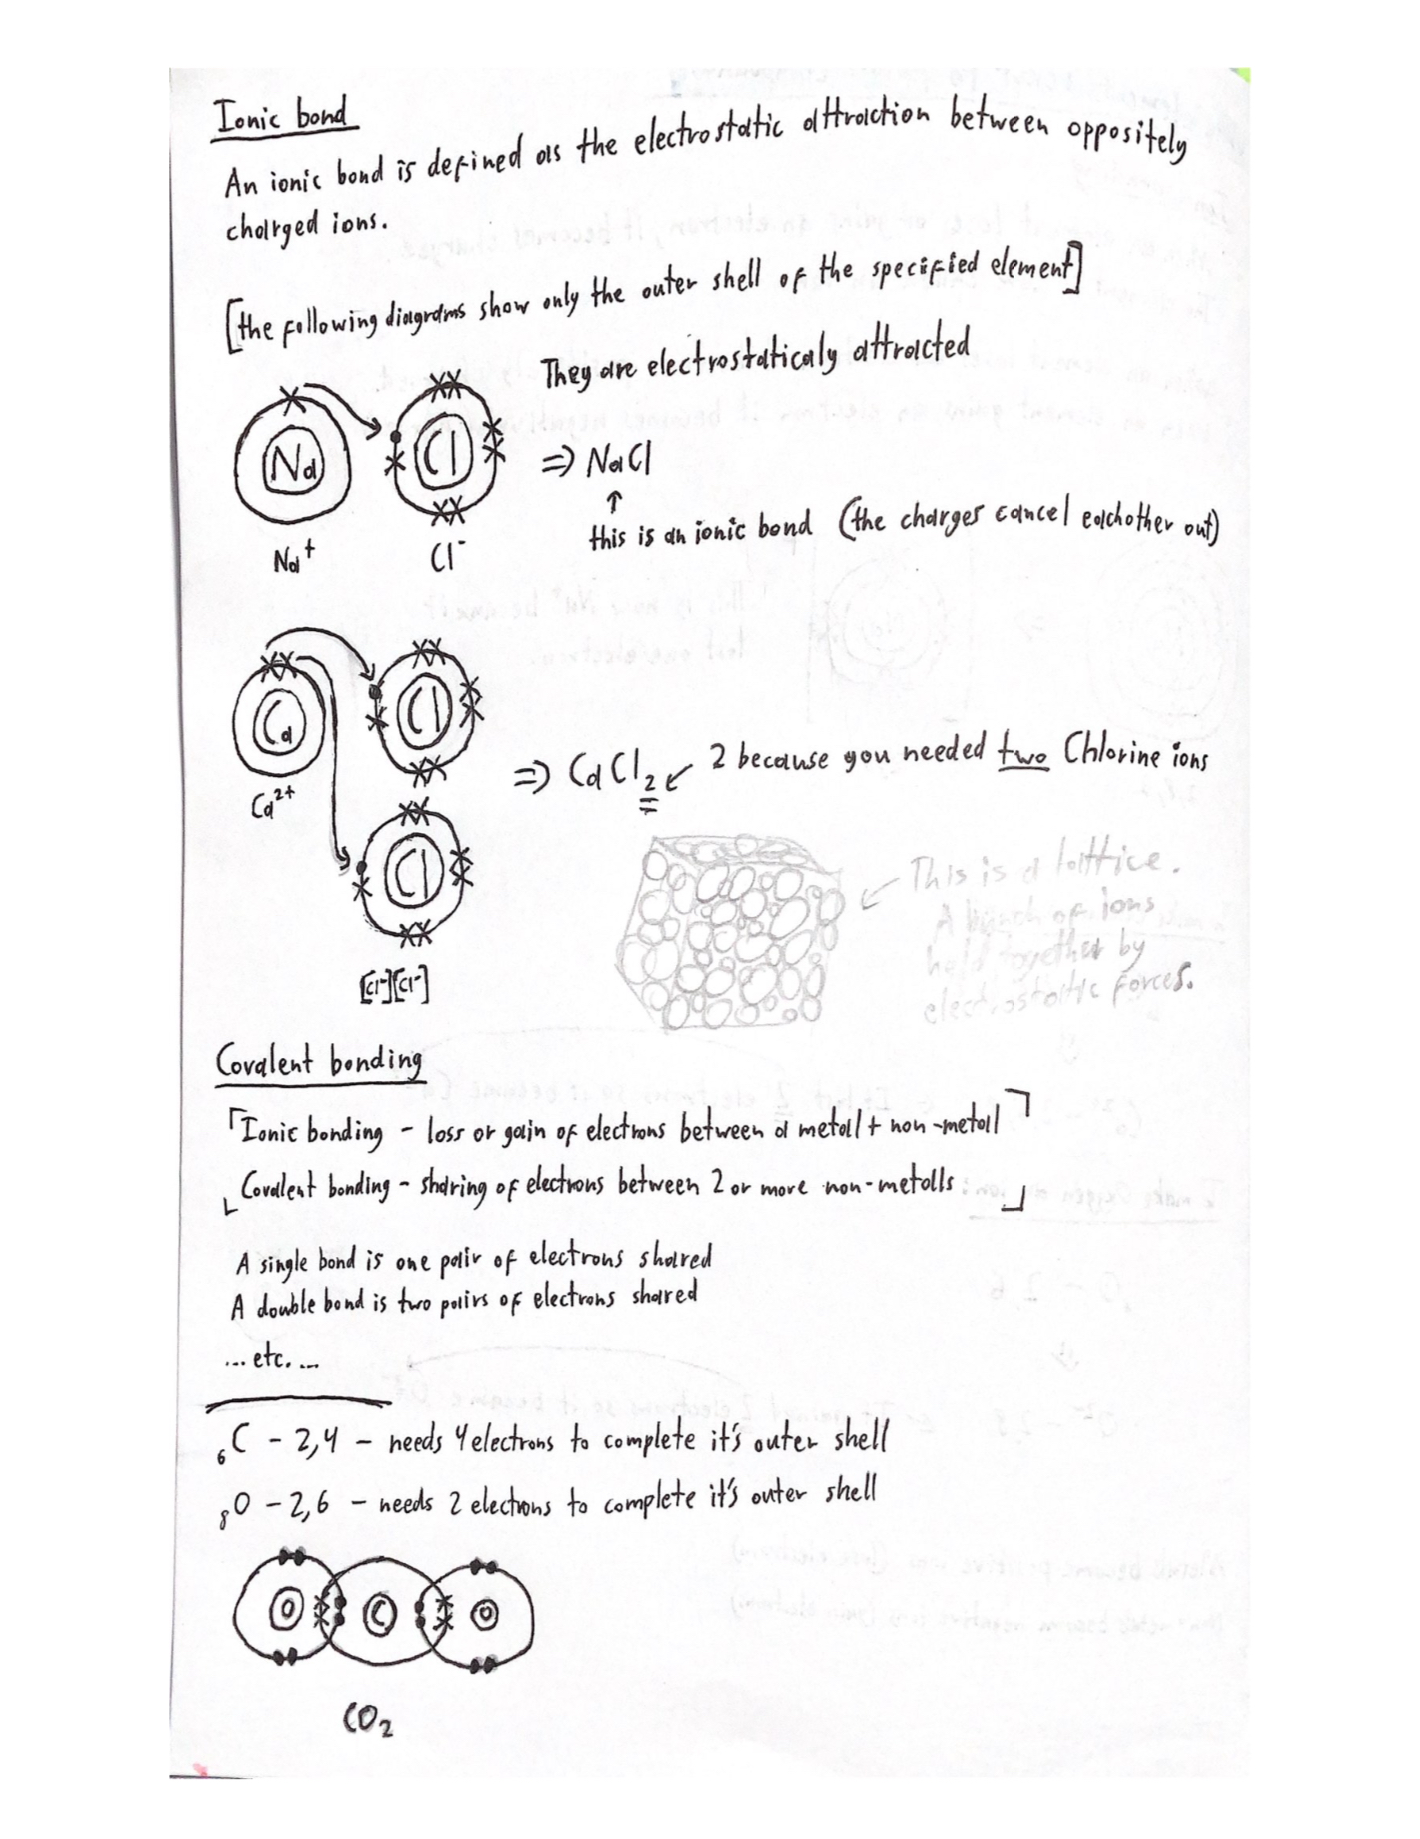 Ionic bond
An ionic bond is defined as the electrostatic attraction between oppositely
charged ions.
[the following diagrams show only the outer shell of the specified element]
They are electrostaticaly attracted
Na Cl ⇒ NaCl
↑
this is an ionic bond (the charges cancel eachother out)
Na⁺ Cl⁻
Ca Cl
⇒ CaCl₂ ↙ 2 because you needed two Chlorine ions
Ca²⁺
Cl
This is a lattice.
A bunch of ions
held together by
electrostatic forces.
[Cl⁻][Cl⁻]
Covalent bonding
[Ionic bonding - loss or gain of electrons between a metal + non-metal
Covalent bonding - sharing of electrons between 2 or more non-metalls]
A single bond is one pair of electrons shared
A double bond is two pairs of electrons shared
... etc. ...
₆C - 2,4 - needs 4 electrons to complete it's outer shell
₈O - 2,6 - needs 2 electrons to complete it's outer shell
O C O
CO₂